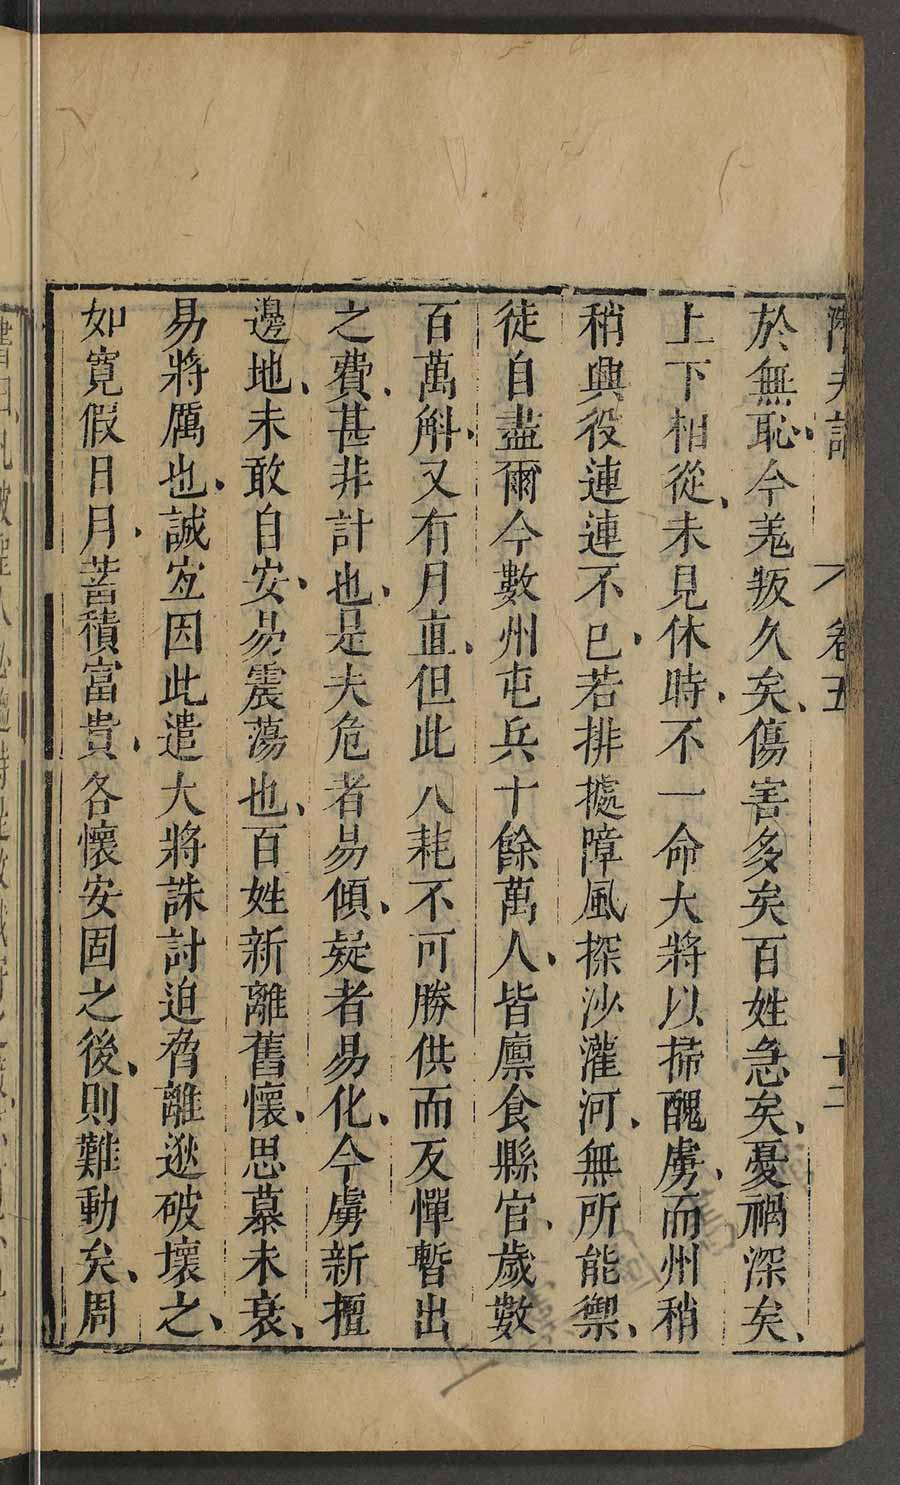 潛夫論 卷五 十二
於無恥、今羌叛久矣、傷害多矣百姓急矣、憂禍深矣、
上下相從、未見休時、不一命大將以掃醜虜、而州稍
稍興役連連不已、若排𢴃障風探沙灌河、無所能禦、
徒自盡爾今數州屯兵十餘萬人、皆廪食縣官、歲數
百萬斛、又有月直、但此人耗不可勝供而反憚暫出
之費、甚非計也、是夫危者易傾、疑者易化、今虜新擅
邊地、未敢自安、易震蕩也、百姓新離舊懷、思慕未衰、
易將厲也、誠宐因此遣大將誅討迫脅離逖破壞之、
如寬假日月、蓄積富貴、各懷安固之後、則難動矣、周